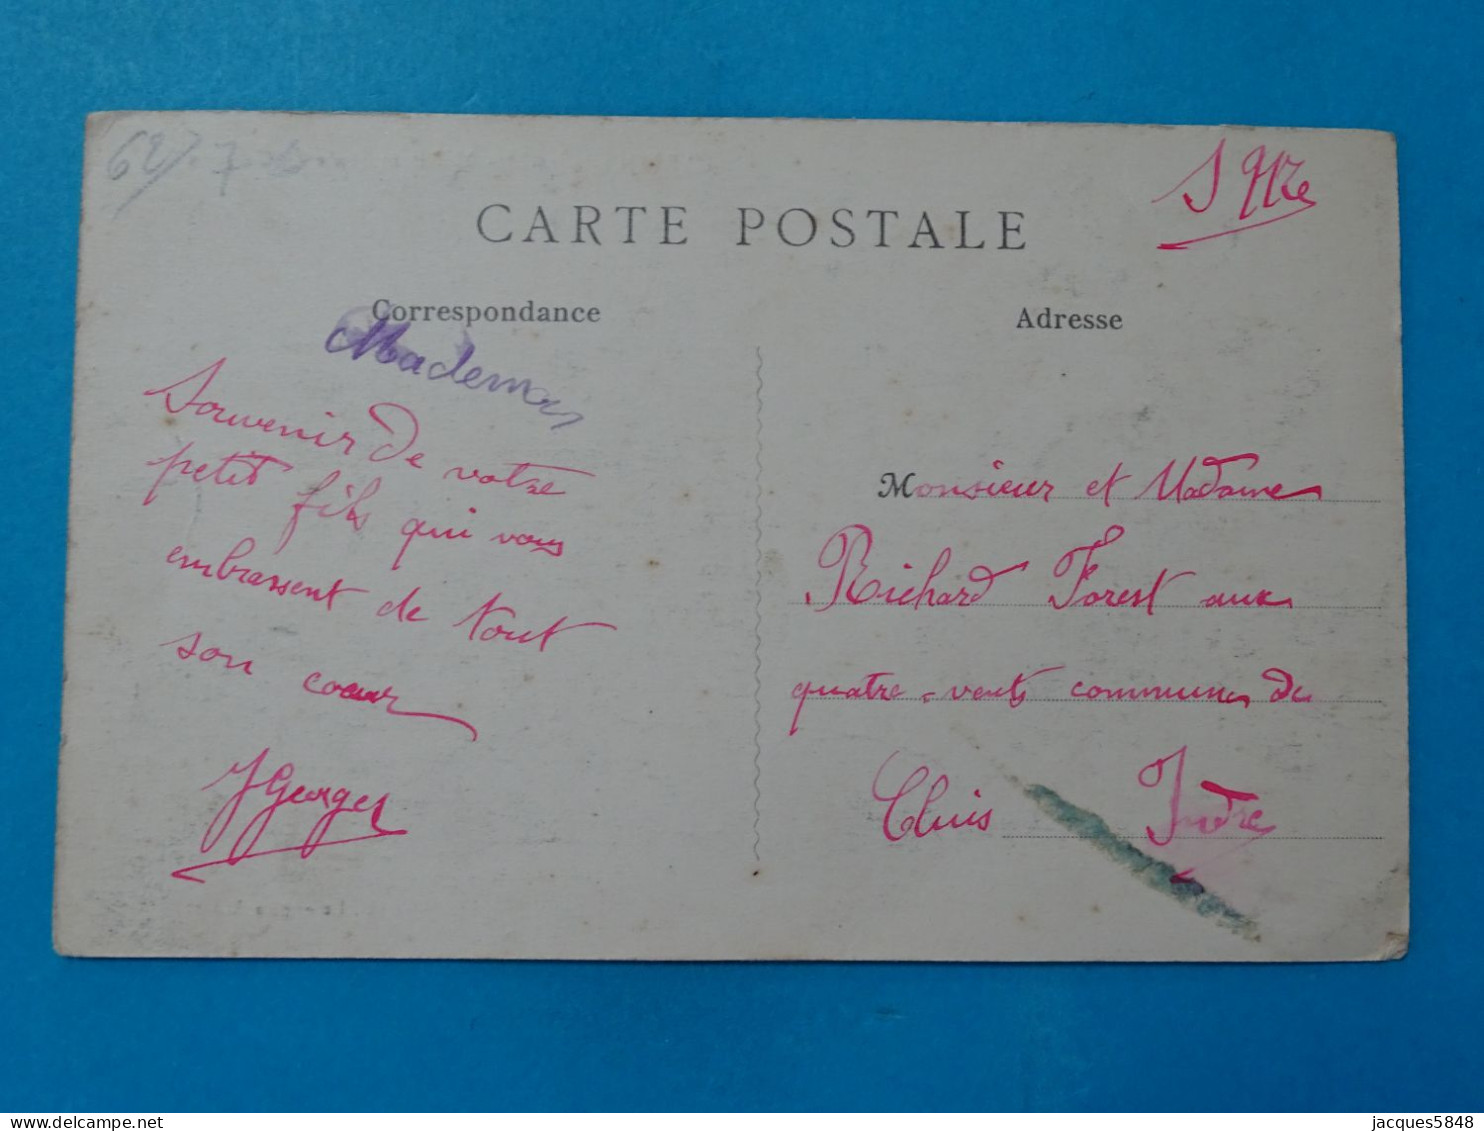 62
7
S Mre
CARTE POSTALE
Correspondance
Mademois
Souvenir de votre
petit fils qui vous
embrassent de tout
son coeur
J Georges
Adresse
Monsieur et Madame
Richard Forest aux
quatre-vents communes de
Cluis Indre
jacques5848